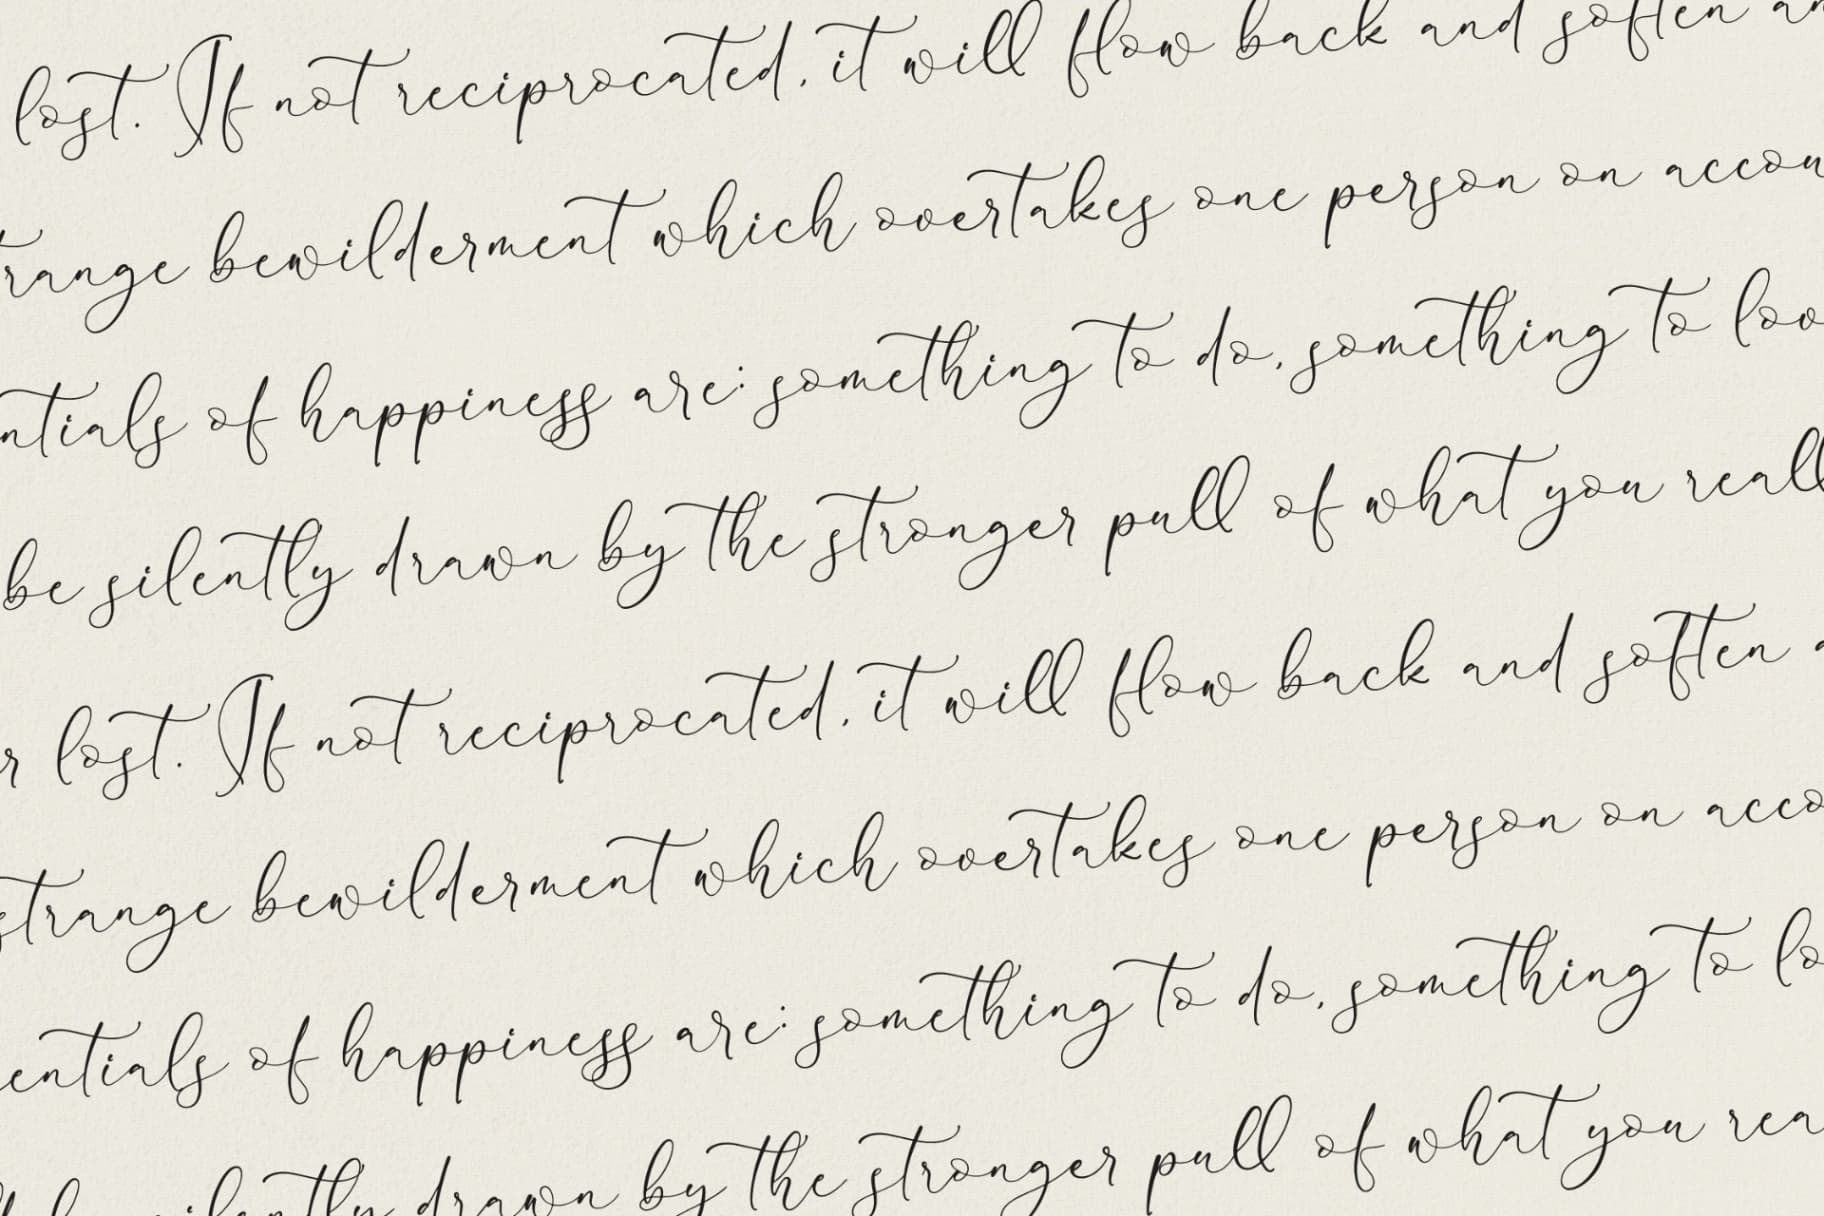 lost. If not reciprocated, it will flow back and soften an
trange bewilderment which overtakes one person on accou
ntials of happiness are: something to do, something to lov
be silently drawn by the stronger pull of what you reall
r lost. If not reciprocated, it will flow back and soften a
strange bewilderment which overtakes one person on acco
entials of happiness are: something to do, something to lo
silently drawn by the stronger pull of what you rea